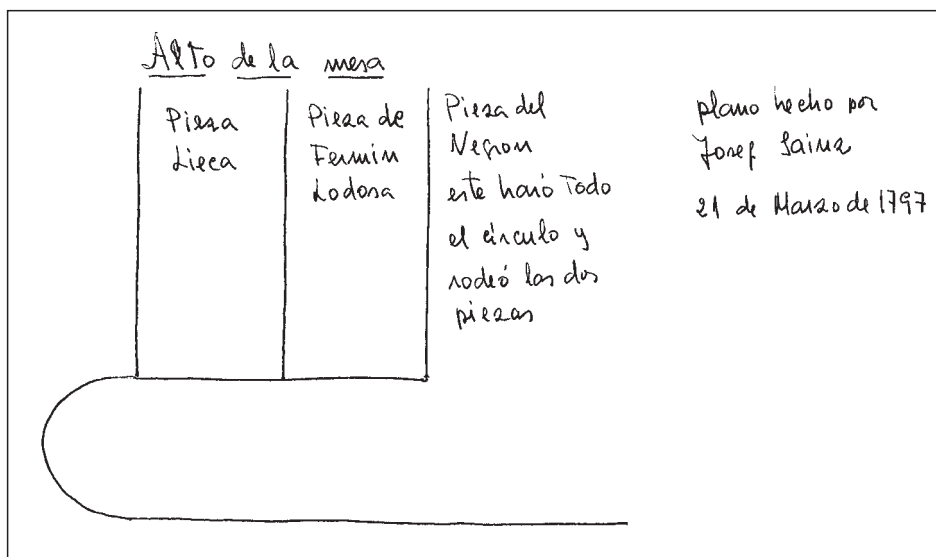 Alto de la mesa
Pieza
Lieca
Pieza de
Fermin
Lodosa
Pieza del
Negron
este haró Todo
el círculo y
rodeó las dos
piezas
plano hecho por
Josef Sainz
21 de Marzo de 1797